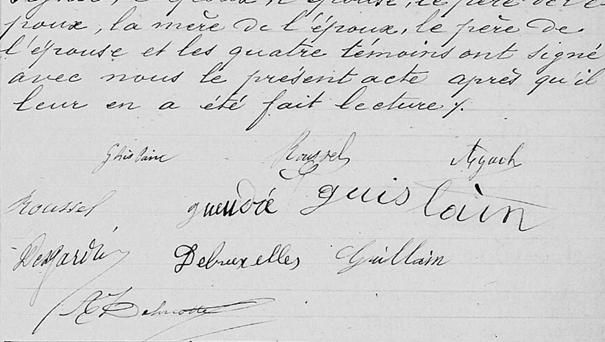 poux, la mère de l'époux, le père de
l'épouse et les quatre témoins ont signé
avec nous le présent acte après qu'il
leur en a été fait lecture %.
Ghislain Roussel
Roussel gueudré guislain
Desjardin Debruxelles Guillain